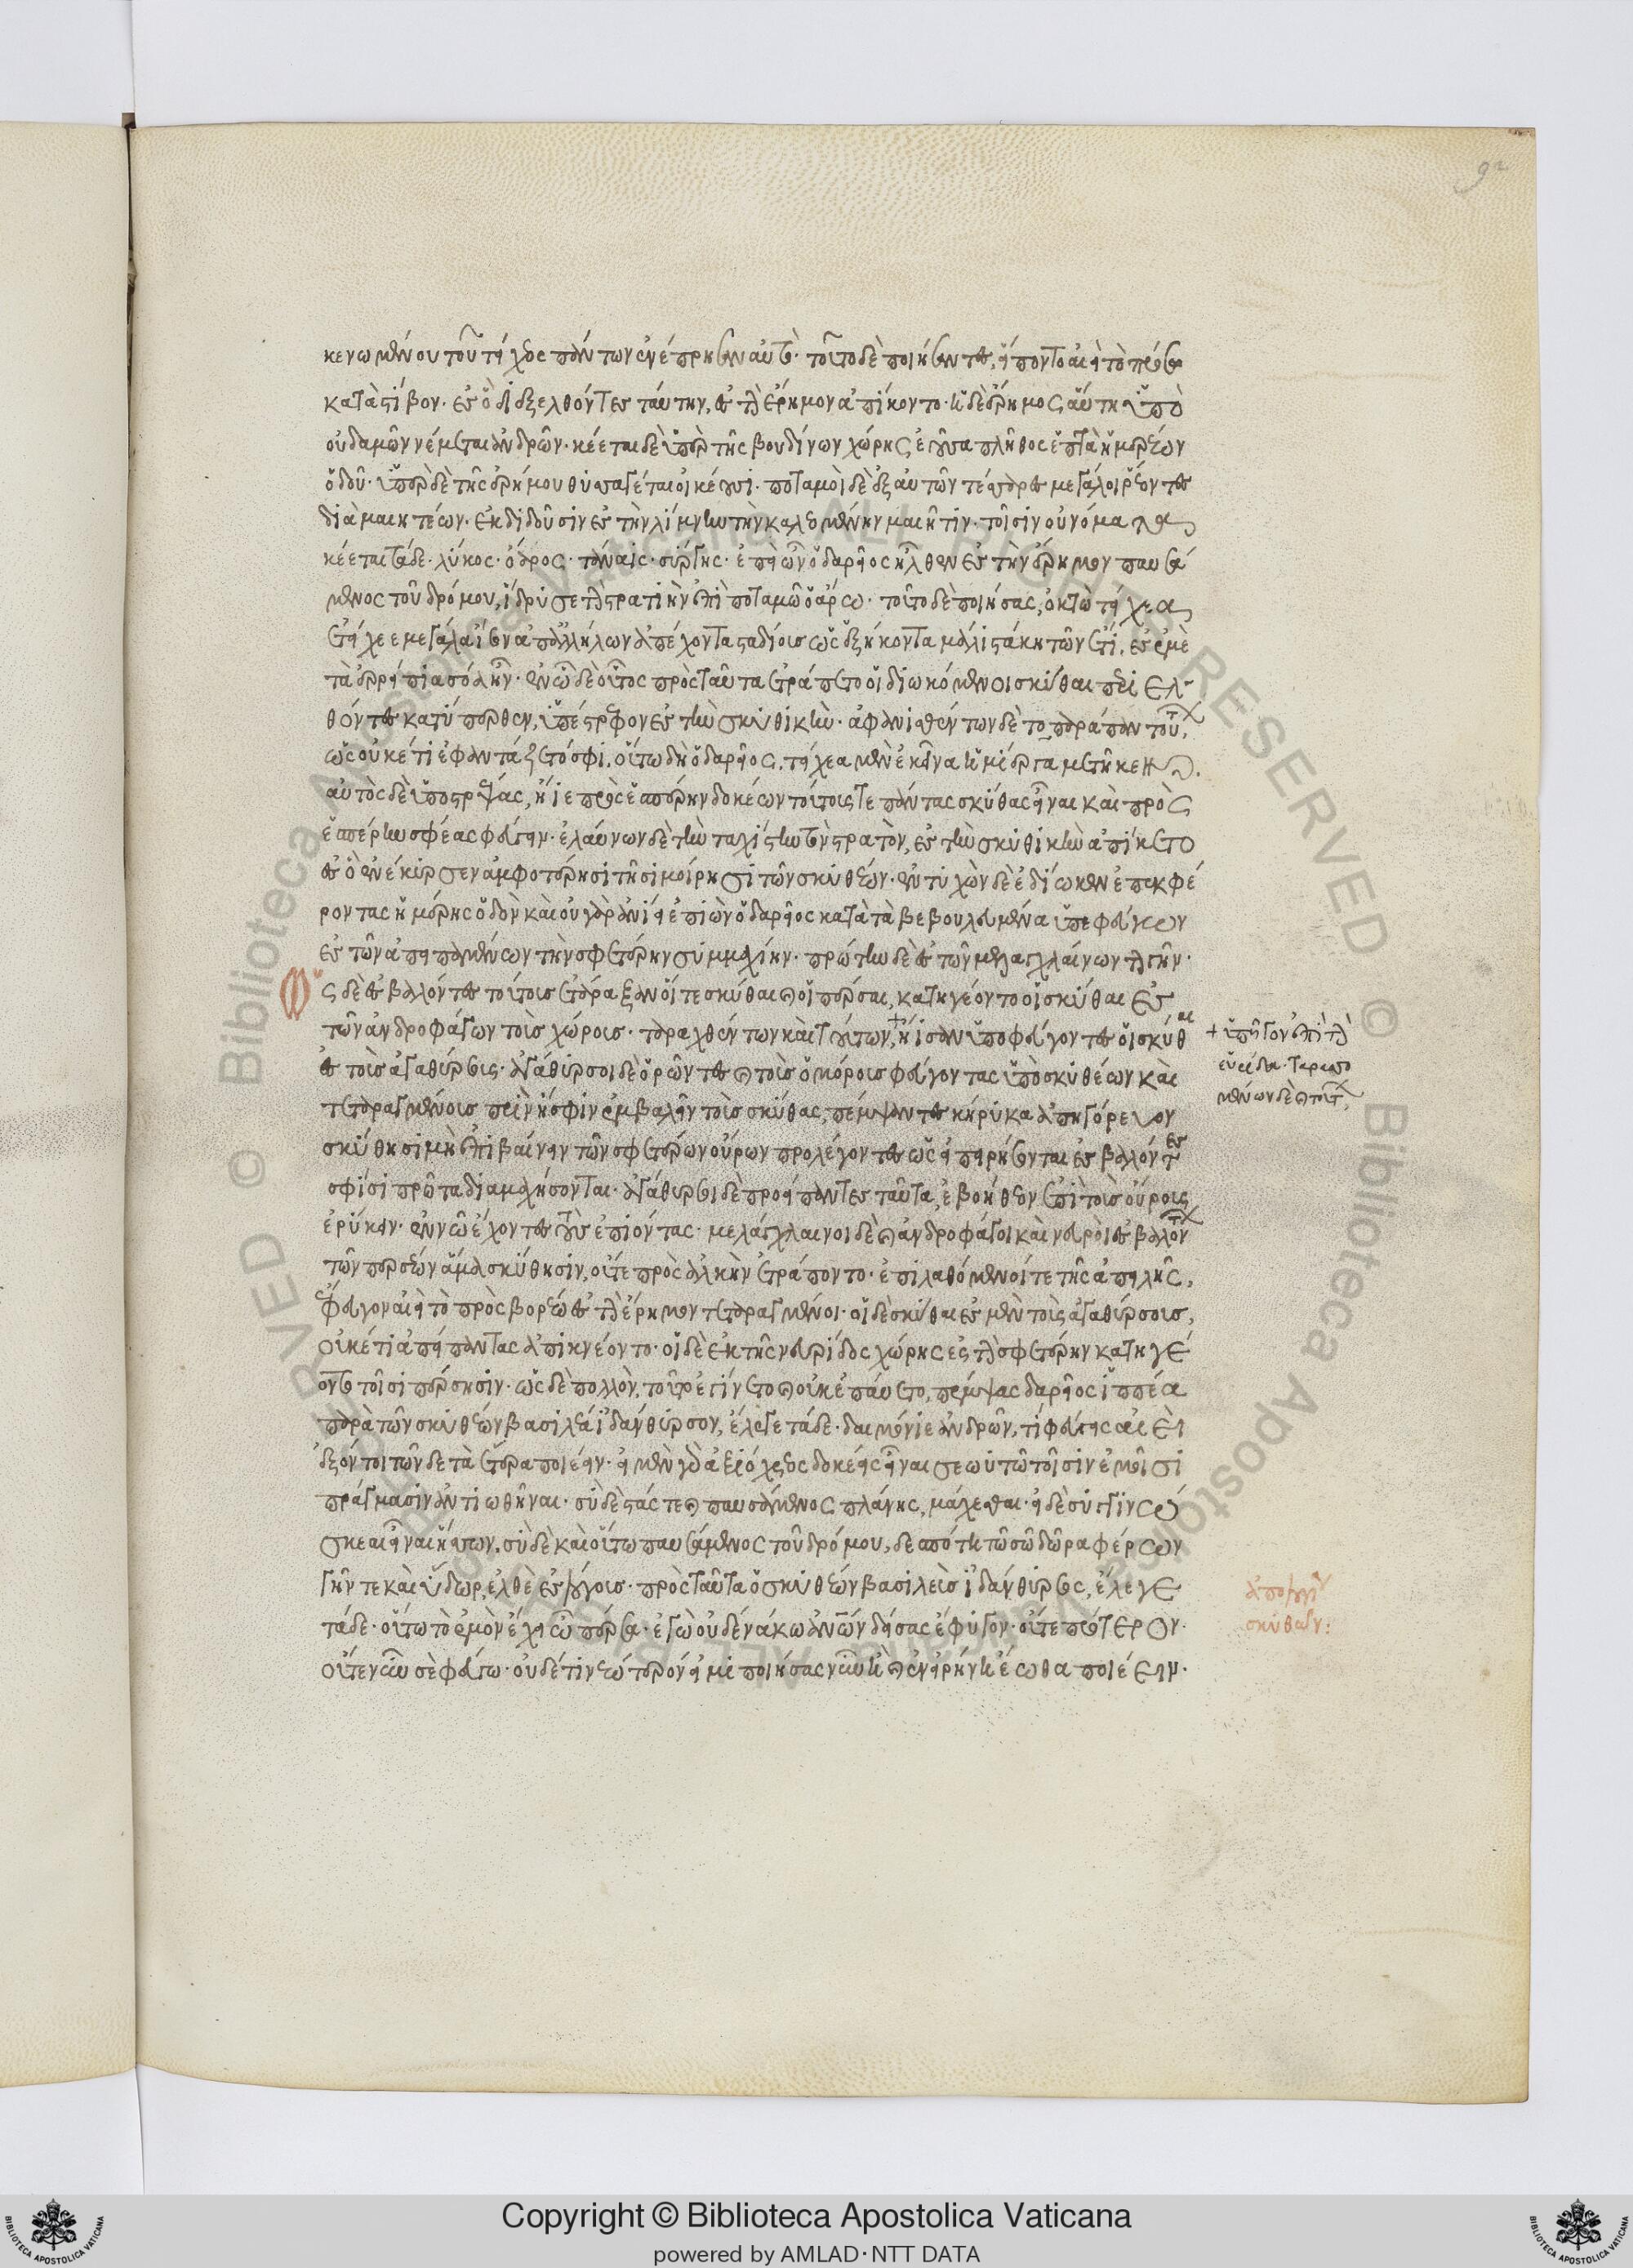 κενωμένου τοῦ τείχεος πάντων ἐνέπρησαν αὐτό· τοῦτο δὲ ποιήσαντες, εἵποντο αἰεὶ τὸ πρόσω
κατὰ στίβον· ἐς ὃ διεξελθόντες ταύτην, ἐς τὴν ἔρημον ἀπίκοντο· ἡ δὲ ἔρημος αὕτη ὑπὸ
οὐδαμῶν νέμεται ἀνδρῶν· κέεται δὲ ὑπὲρ τῆς βουδίνων χώρης ἐοῦσα πλῆθος ἑπτὰ ἡμερέων
ὁδοῦ· ὑπὲρ δὲ τῆς ἐρήμου θυσσαγέται οἰκέουσι· ποταμοὶ δὲ ἐξ αὐτῶν τέσσερες μεγάλοι ῥέοντες
διὰ μαιητέων· ἐκδιδοῦσιν ἐς τὴν λίμνην τὴν καλεομένην μαιῆτιν· τοῖσιν οὐνόματα
κέεται τάδε· λύκος· ὄαρος· τάναϊς· σύργης· ἐπεὶ ὦν ὁ δαρεῖος ἦλθεν ἐς τὴν ἔρημον παυσά
μενος τοῦ δρόμου, ἵδρυσε τὴν στρατιὴν ἐπὶ ποταμῷ ὀάρῳ· τοῦτο δὲ ποιήσας, ὀκτὼ τείχεα
ἐτείχεε μεγάλα ἴσον ἀπ' ἀλλήλων ἀπέχοντα σταδίους ὡς ἑξήκοντα μάλιστά κη τῶν ἔτι ἐς ἐμὲ
τὰ ἐρείπια σόα ἦν· ἐν ᾧ δὲ οὗτος πρὸς ταῦτα ἐτράπετο οἱ διωκόμενοι σκύθαι περιελ
θόντες κατύπερθεν, ὑπέστρεφον ἐς τὴν σκυθικήν· ἀφανισθέντων δὲ τοπαράπαν τούτων,
ὡς οὐκέτι ἐφαντάζετό σφι, οὕτω δὴ ὁ δαρεῖος, τείχεα μὲν ἐκεῖνα ἡμίεργα μετῆκεν.
αὐτὸς δὲ ὑποστρέψας, ἤιε πρὸς ἑσπέρην δοκέων τούτους τε πάντας σκύθας εἶναι καὶ πρὸς
ἑσπέρην σφέας φεύγειν· ἐλαύνων δὲ τὴν ταχίστην τὸν στρατὸν, ἐς τὴν σκυθικὴν ἀπίκετο
ἐς ὃ ἐνέκυρσεν ἀμφοτέρησι τῆσι μοίρησι τῶν σκυθέων· ἐντυχὼν δὲ ἐδίωκεν ἐπεκφέ
ροντας ἡμέρης ὁδὸν καὶ οὐ γὰρ ἀνίει ἐπιὼν ὁ δαρεῖος κατὰ τὰ βεβουλευμένα ὑπεφεύγεον
ἐς τῶν ἀπειπαμένων τὴν σφετέρην συμμαχίην· πρώτην δὲ ἐς τῶν μελαγχλαίνων τὴν γῆν·
ὡς δὲ ἐσβαλόντες τούτους ἐτάραξαν οἵ τε σκύθαι καὶ οἱ πέρσαι, κατηγέοντο οἱ σκύθαι ἐς
τῶν ἀνδροφάγων τοὺς χώρους· ταραχθέντων καὶ τούτων, + ἤισαν ὑποφεύγοντες οἱ σκύθαι
ἐς τοὺς ἀγαθύρσους· ἀγάθυρσοι δὲ ὁρῶντες καὶ τοὺς ὁμόρους φεύγοντας ὑπὸ σκυθέων καὶ
τεταραγμένους πρὶν ἤ σφιν ἐμβαλεῖν τοὺς σκύθας, πέμψαντες κήρυκα ἀπηγόρευον
σκύθησι μὴ ἐπιβαίνειν τῶν σφετέρων οὔρων προλέγοντες ὡς εἰ πειρήσονται ἐσβαλόντες
σφίσι πρῶτα διαμαχήσονται· ἀγάθυρσοι δὲ προείπαντες ταῦτα, ἐβοήθεον ἐπὶ τοὺς οὔρους
ἐρύκειν· ἐν νῷ ἔχοντες τοὺς ἐπιόντας· μελάγχλαινοι δὲ καὶ ἀνδροφάγοι καὶ νευροὶ ἐσβαλόντων
τῶν περσέων ἅμα σκύθησιν, οὔτε πρὸς ἀλκὴν ἐτράποντο· ἐπιλαθόμενοί τε τῆς ἀπειλῆς,
ἔφευγον αἰεὶ τὸ πρὸς βορέω ἐς τὴν ἔρημον τεταραγμένοι· οἱ δὲ σκύθαι ἐς μὲν τοὺς ἀγαθύρσους,
οὐκέτι ἀπείπαντας ἀπικνέοντο· οἱ δὲ ἐκ τῆς νευρίδος χώρης ἐς τὴν σφετέρην κατηγέ
οντο τοῖσι πέρσησιν· ὡς δὲ πολλὸν τοῦτο ἐγίνετο καὶ οὐκ ἐπαύετο, πέμψας δαρεῖος ἱππέα
παρὰ τῶν σκυθέων βασιλέα ἰδάνθυρσον, ἔλεγε τάδε· δαιμόνιε ἀνδρῶν, τί φεύγεις αἰεὶ
ἐξόν τοι τῶνδε τὰ ἕτερα ποιέειν· εἰ μὲν γὰρ ἀξιόχρεος δοκέεις εἶναι σεωυτῷ τοῖσιν ἐμοῖσι
πρήγμασιν ἀντιωθῆναι· σὺ δὲ στάς τε καὶ παυσάμενος πλάνης, μάχεσθαι· εἰ δὲ συγγινώ
σκεαι εἶναι ἥσσων, σὺ δὲ καὶ οὕτω παυσάμενος τοῦ δρόμου, δεσπότῃ τῷ σῷ δῶρα φέρων
γῆν τε καὶ ὕδωρ, ἐλθὲ ἐς λόγους· πρὸς ταῦτα ὁ σκυθέων βασιλεὺς ἰδάνθυρσος, ἔλεγε
τάδε· οὕτω τὸ ἐμὸν ἔχει ὦ πέρσα· ἐγὼ οὐδένα κω ἀνθρώπων δείσας ἔφυγον· οὔτε πρότερον·
οὔτε νῦν σὲ φεύγω· οὐδέ τι νεώτερόν εἰμι ποιήσας νῦν ἢ καὶ ἐν εἰρήνῃ ἐώθεα ποιέειν·
+ ὑπῆγον ἐπὶ τὴν
νευρίδα· ταρασσο
μένων δὲ καὶ τούτων
ἀπολογία
σκυθῶν:
Copyright © Biblioteca Apostolica Vaticana
powered by AMLAD·NTT DATA